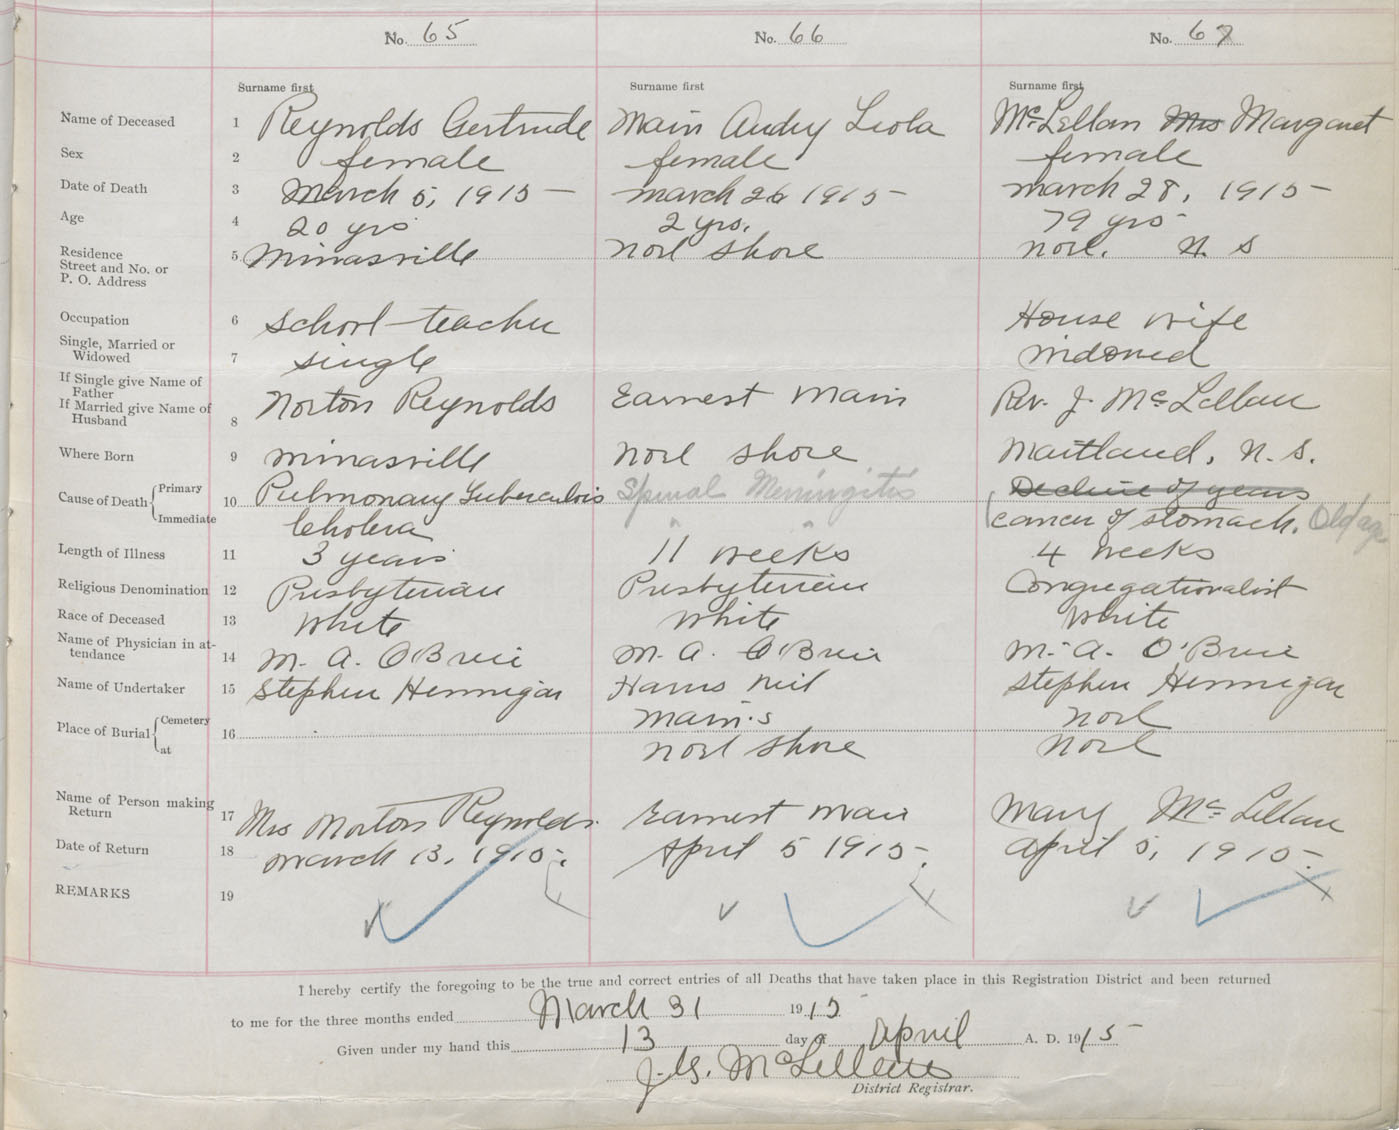 No. 65 No. 66 No. 67
Surname first Surname first Surname first
Name of Deceased 1 Reynolds Gertrude Main Audry Leola McLellan Mrs Margaret
Sex 2 female female female
Date of Death 3 March 5, 1915 March 26 1915 March 28, 1915
Age 4 20 yrs 2 yrs. 79 yrs
Residence
Street and No. or
P. O. Address
5 Minasville Noel Shore Noel. N. S
Occupation 6 School teacher House wife
Single, Married or
Widowed 7 single widowed
If Single give Name of
Father
If Married give Name of
Husband 8 Norton Reynolds Earnest Main Rev. J. McLellan
Where Born 9 Minasville Noel Shore Maitland, N. S.
Cause of Death Primary 10 Pulmonary Tuberculois Spinal Meningitis Decline of years
Immediate Cholera " " cancer of stomach. Old age
Length of Illness 11 3 years 11 weeks 4 weeks
Religious Denomination 12 Presbyterian Presbyterian Congregationalist
Race of Deceased 13 White White White
Name of Physician in at-
tendance 14 M. A. O'Brien M. A. O'Brien M. A. O'Brien
Name of Undertaker 15 Stephen Hennigar Harris Neil Stephen Hennigar
Place of Burial Cemetery 16 Main's Noel
at Noel Shore Noel
Name of Person making
Return 17 Mrs Norton Reynolds. Earnest Main Mary McLellan
Date of Return 18 March 13, 1915. April 5 1915. April 5, 1915.
REMARKS 19
I hereby certify the foregoing to be the true and correct entries of all Deaths that have taken place in this Registration District and been returned
to me for the three months ended March 31 1915
Given under my hand this 13 day of April A. D. 1915
McLellan
District Registrar.